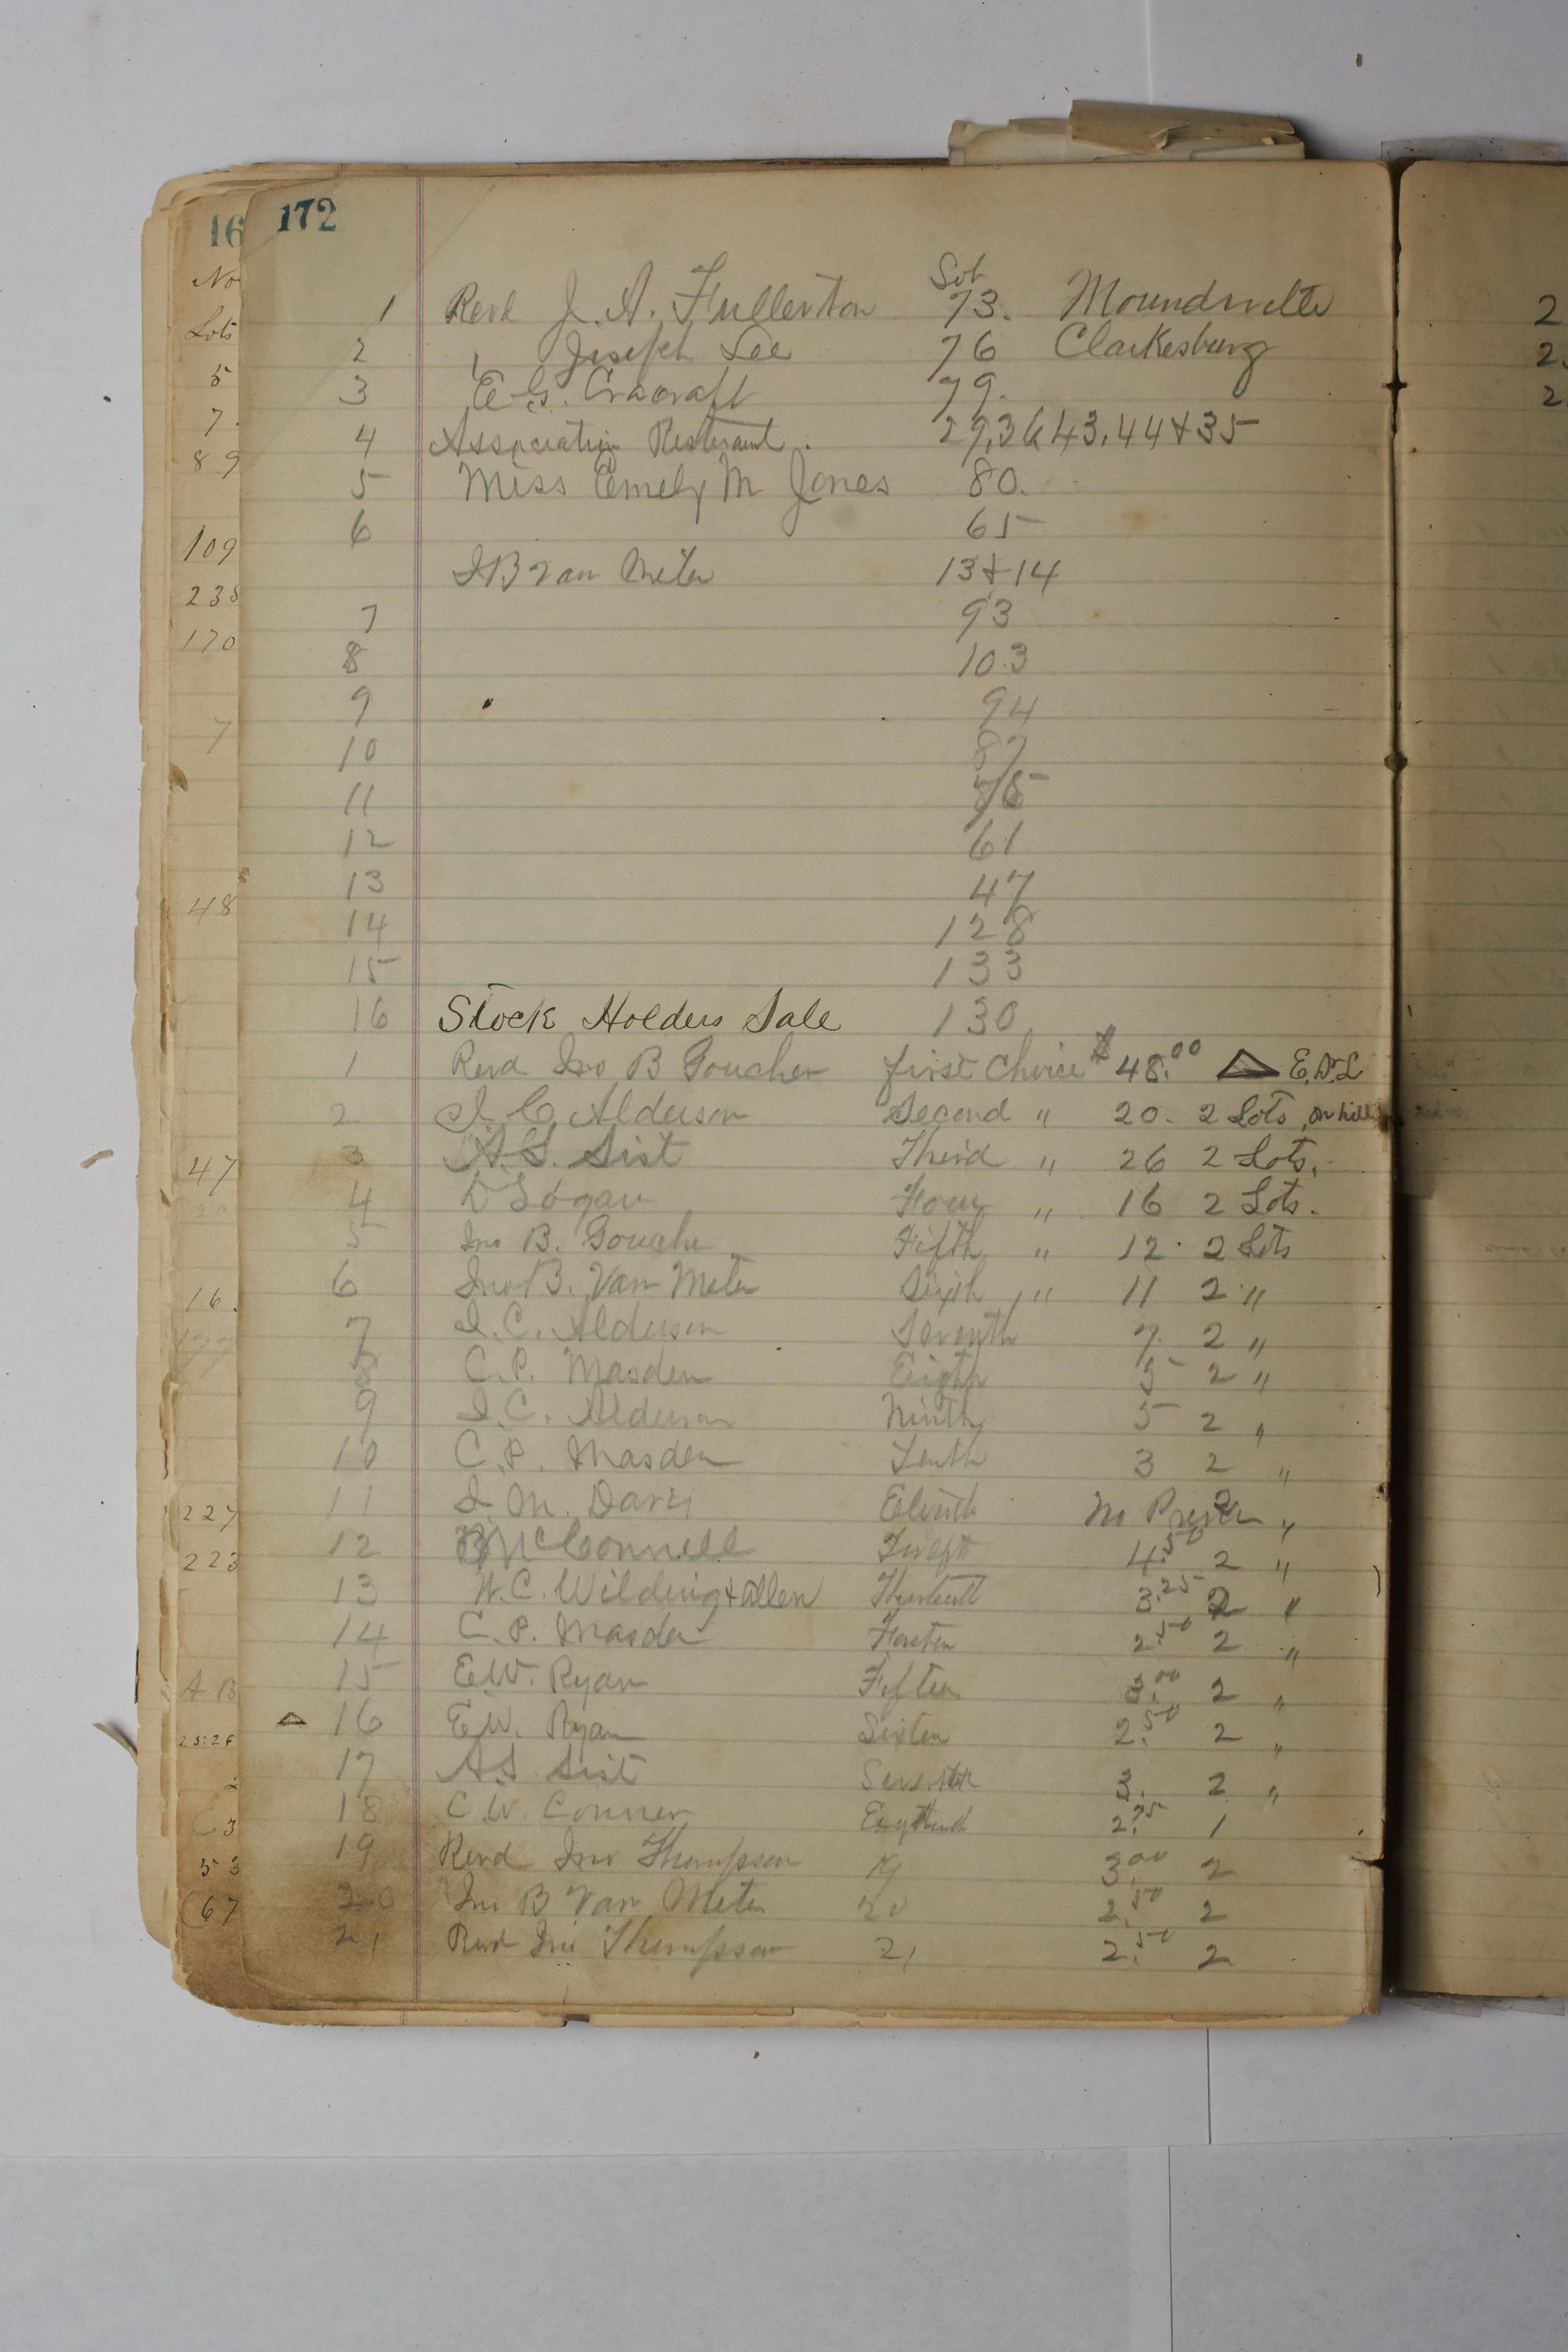 172
Lot
1 Revd J. A. Fullerton 73. Moundville
2 " Joseph Lee 76 Clarkesburg
3 E G. Cracraft 79.
4 Association Resteraunt. 29,36 43,44 & 35
5 Miss Emely M Jones 80.
6 65
J B Van Meter 13 & 14
7 93
8 103
9 94
10 87
11
12 61
13 47
14 128
15 133
16 Stock Holders Sale 130
1 Revd Jno B Goucher first Choice $ 48.00 E.D.L
2 J. C. Alderson Second " 20. 2 Lots, on hill
3 A.S. List Third " 26 2 Lots.
4 D Logan Four " 16 2 Lots.
5 Jno B. Gouche Fifth " 12. 2 Lots
6 Jno B. Van Meter Sixth " 11 2 "
7 J. C. Alderson Seventh 7. 2 "
8 C. P. Masden Eigth 5 2 "
9 J. C. Alderson Ninth 5 2 "
10 C. P. Masden Tenth 3 2 "
11 J. M. Davis Elevnth No 2 "
12 McConnell 4.50 2 "
13 W. C. Wilding & Allen 3.25 2 "
14 C. P. Masden 2.50 2 "
15 E.W. Ryan Fiften 3.00 2 "
16 E.W. Ryan Sixten 2.50 2 "
17 A.S. List 3. 2 "
18 C. W. Conner 2.75 1
19 Revd Jno Thompson 19 3.00 2
20 Jno B Van Meter 20 2.50 2
21 Revd Jno Thompson 21 2.50 2
16
No
Lots
5
7.
8 9
109
238
170
7
48
47
16.
227
223
A B
25:26
2
C 3
5 3
(67
2
2
2